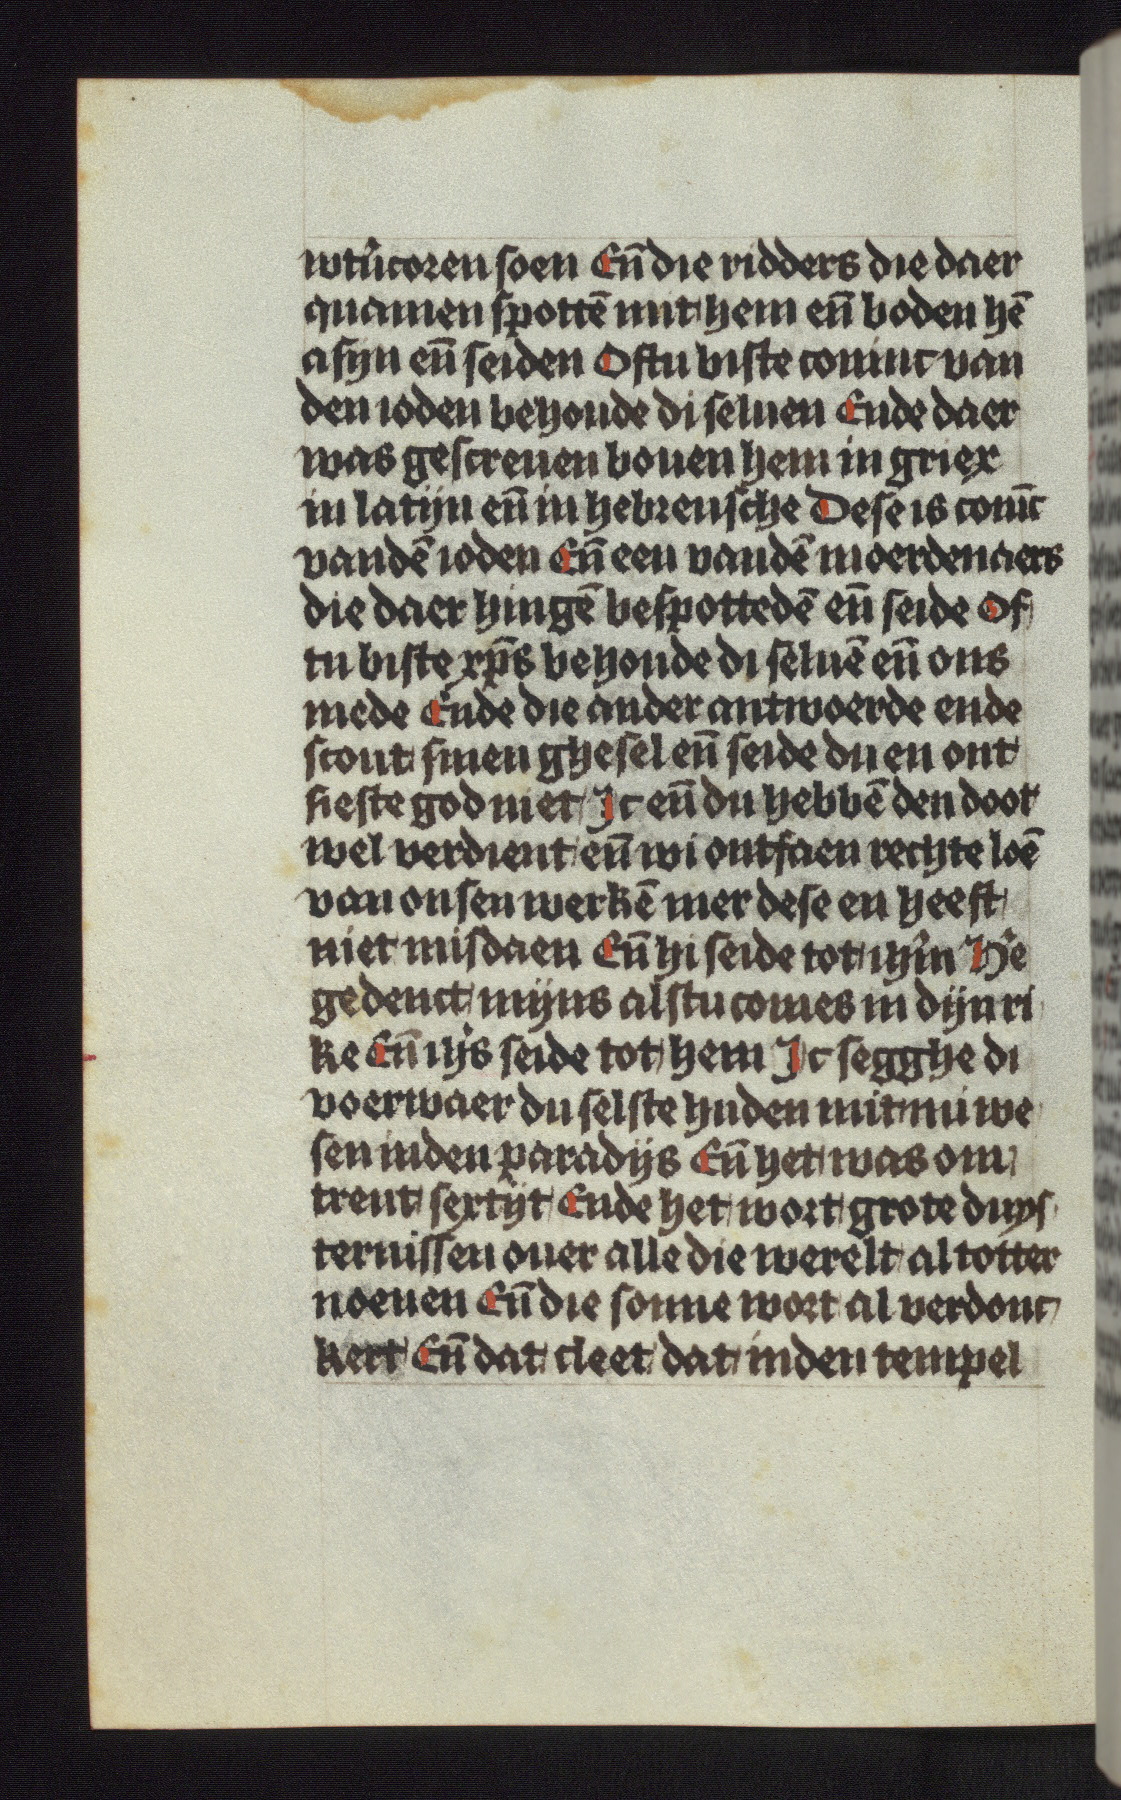 wtůcoren soen En̄ die ridders die daer
quamen spottē mit hem en̄ boden hē
asyn en̄ seiden Oftu biste coninc van
den ioden behoude di seluen Ende daer
was gescreuen bouen hem in griex
in latijn en̄ in hebreusche Dese is coni̅c
vandē ioden En̄ een vandē moerdenaers
die daer hingē bespottedē en̄ seide Of
tu biste xp̄s behoude di seluē en̄ ons
mede Ende die ander antwoerde ende
scout sinen ghesel en̄ seide du en ont
sieste god niet Ic en̄ du hebbē den doot
wel verdient en̄ wi ontfaen rechte loē
van onsen werkē mer dese en heeft
niet misdaen En̄ hi seide tot ihm̄ He᷑
gedenct mijns alstu comes in dijn ri
ke En̄ ihs̄ seide tot hem Ic segghe di
voerwaer du selste huden mit mi we
sen inden paradijs En̄ het was om
trent sextijt Ende het wort grote duys
ternissen ouer alle die werelt al totter
noenen En̄ die sonne wort al verdonc
kert En̄ dat cleet dat inden tempel